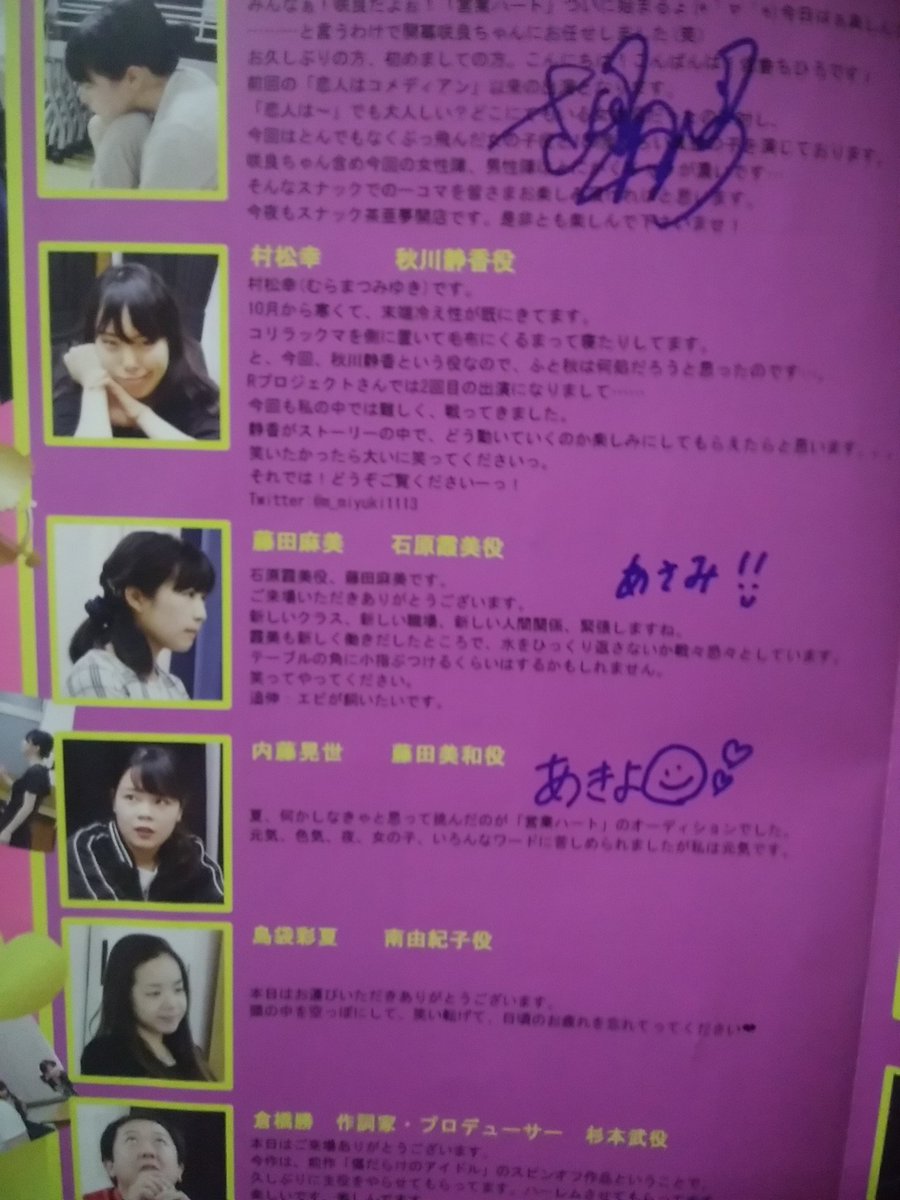 みんなぁ！咲良だよぉ！「営業ハート」ついに始まるよ
と言うわけで開幕咲良ちゃんにお任せしました(笑)
お久しぶりの方、初めましての方。こんにちは！こんばんは！
前回の「恋人はコメディアン」以来の出演と
「恋人は〜」でも大人しい？どこにでもいる
今回はとんでもなくぶっ飛んだ女の子を演じております。
咲良ちゃん含め今回の女性陣、男性陣は
そんなスナックでの一コマを皆さまお楽し
今夜もスナック茶亜夢開店です。是非とも楽しんで下さいませ！
村松幸 秋川静香役
村松幸(むらまつみゆき)です。
10月から寒くて、末端冷え性が既にきてます。
コリラックマを側に置いて毛布にくるまって寝たりしてます。
と、今回、秋川静香という役なので、ふと秋は何処だろうと思ったのです…。
Rプロジェクトさんでは2回目の出演になりまして……
今回も私の中では難しく、戦ってきました。
静香がストーリーの中で、どう動いていくのか楽しみにしてもらえたらと思います。
笑いたかったら大いに笑ってくださいっ。
それでは！どうぞご覧くださいーっ！
Twitter @m_miyuki1113
藤田麻美 石原霞美役
あさみ!!
石原霞美役、藤田麻美です。
ご来場いただきありがとうございます。
新しいクラス、新しい職場、新しい人間関係、緊張しますね。
霞美も新しく働きだしたところで、水をひっくり返さないか戦々恐々としています。
テーブルの角に小指ぶつけるくらいはするかもしれません。
笑ってやってください。
追伸：エビが飼いたいです。
内藤晃世 藤田美和役
あきよ
夏、何かしなきゃと思って挑んだのが「営業ハート」のオーディションでした。
元気、色気、夜、女の子、いろんなワードに苦しめられましたが私は元気です。
島袋彩夏 南由紀子役
本日はお運びいただきありがとうございます。
頭の中を空っぽにして、笑い転げて、日頃のお疲れを忘れてってください❤
倉橋勝 作詞家・プロデューサー 杉本武役
本日はご来場ありがとうございます。
今作は、前作「傷だらけのアイドル」のスピンオフ作品ということで、
久しぶりに主役をやらせてもらってます。ハーレムさせてもらって